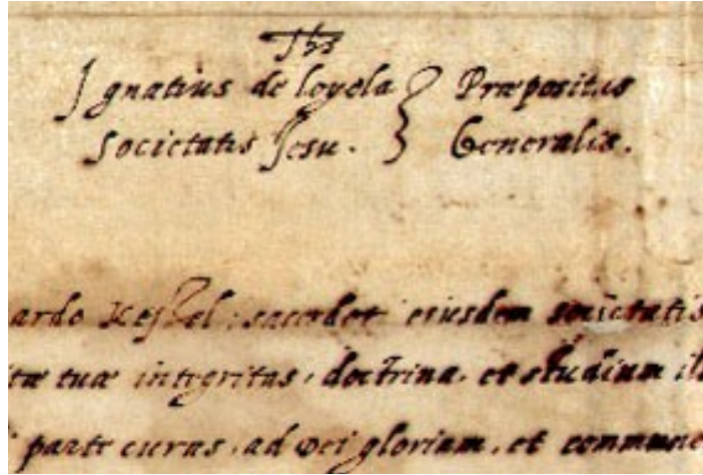 Jhs
Ignatius de loyola } Præpositus
Societatis Jesu. } Generalis.
ardo Kessel, sacerdoti eiusdem societatis
itæ tuæ integritas, doctrina, et studium il
parte curas, ad Dei gloriam, et commune